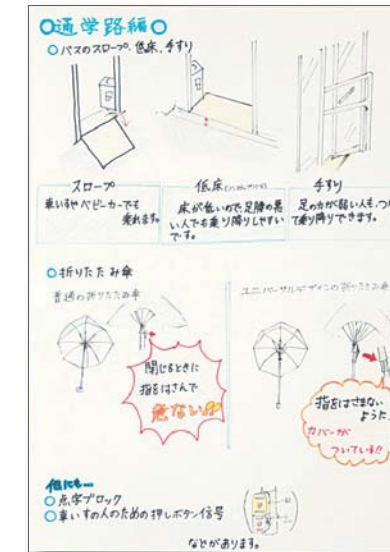 ○通学路編○
○バスのスロープ、低床、手すり
スロープ
車いすやベビーカーでも
乗れます。
低床
床が低いので足腰の悪
い人でも乗り降りしやすい
です。
手すり
足の力が弱い人も、つか
て乗り降りできます。
○折りたたみ傘
普通の折りたたみ傘
ユニバーサルデザインの折りたたみ傘
閉じるときに
指をはさんで
危ない
指をはさまない
ように、
カバーが
ついている!!
他にも…
○点字ブロック
○車いすの人のための押しボタン信号
などがあります。